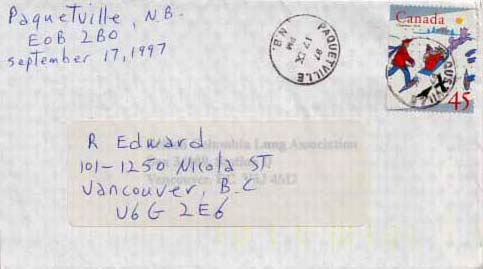 Paquetville, N.B.
E0B 2B0
september 17, 1997
PAQUETVILLE
PM
17 IX
97
N.B.
Canada
45
R Edward
101-1250 Nicola ST.
Vancouver, B.C
V6G 2E6
Columbia Lung Association
Vancouver, B.C. V5J 4M2